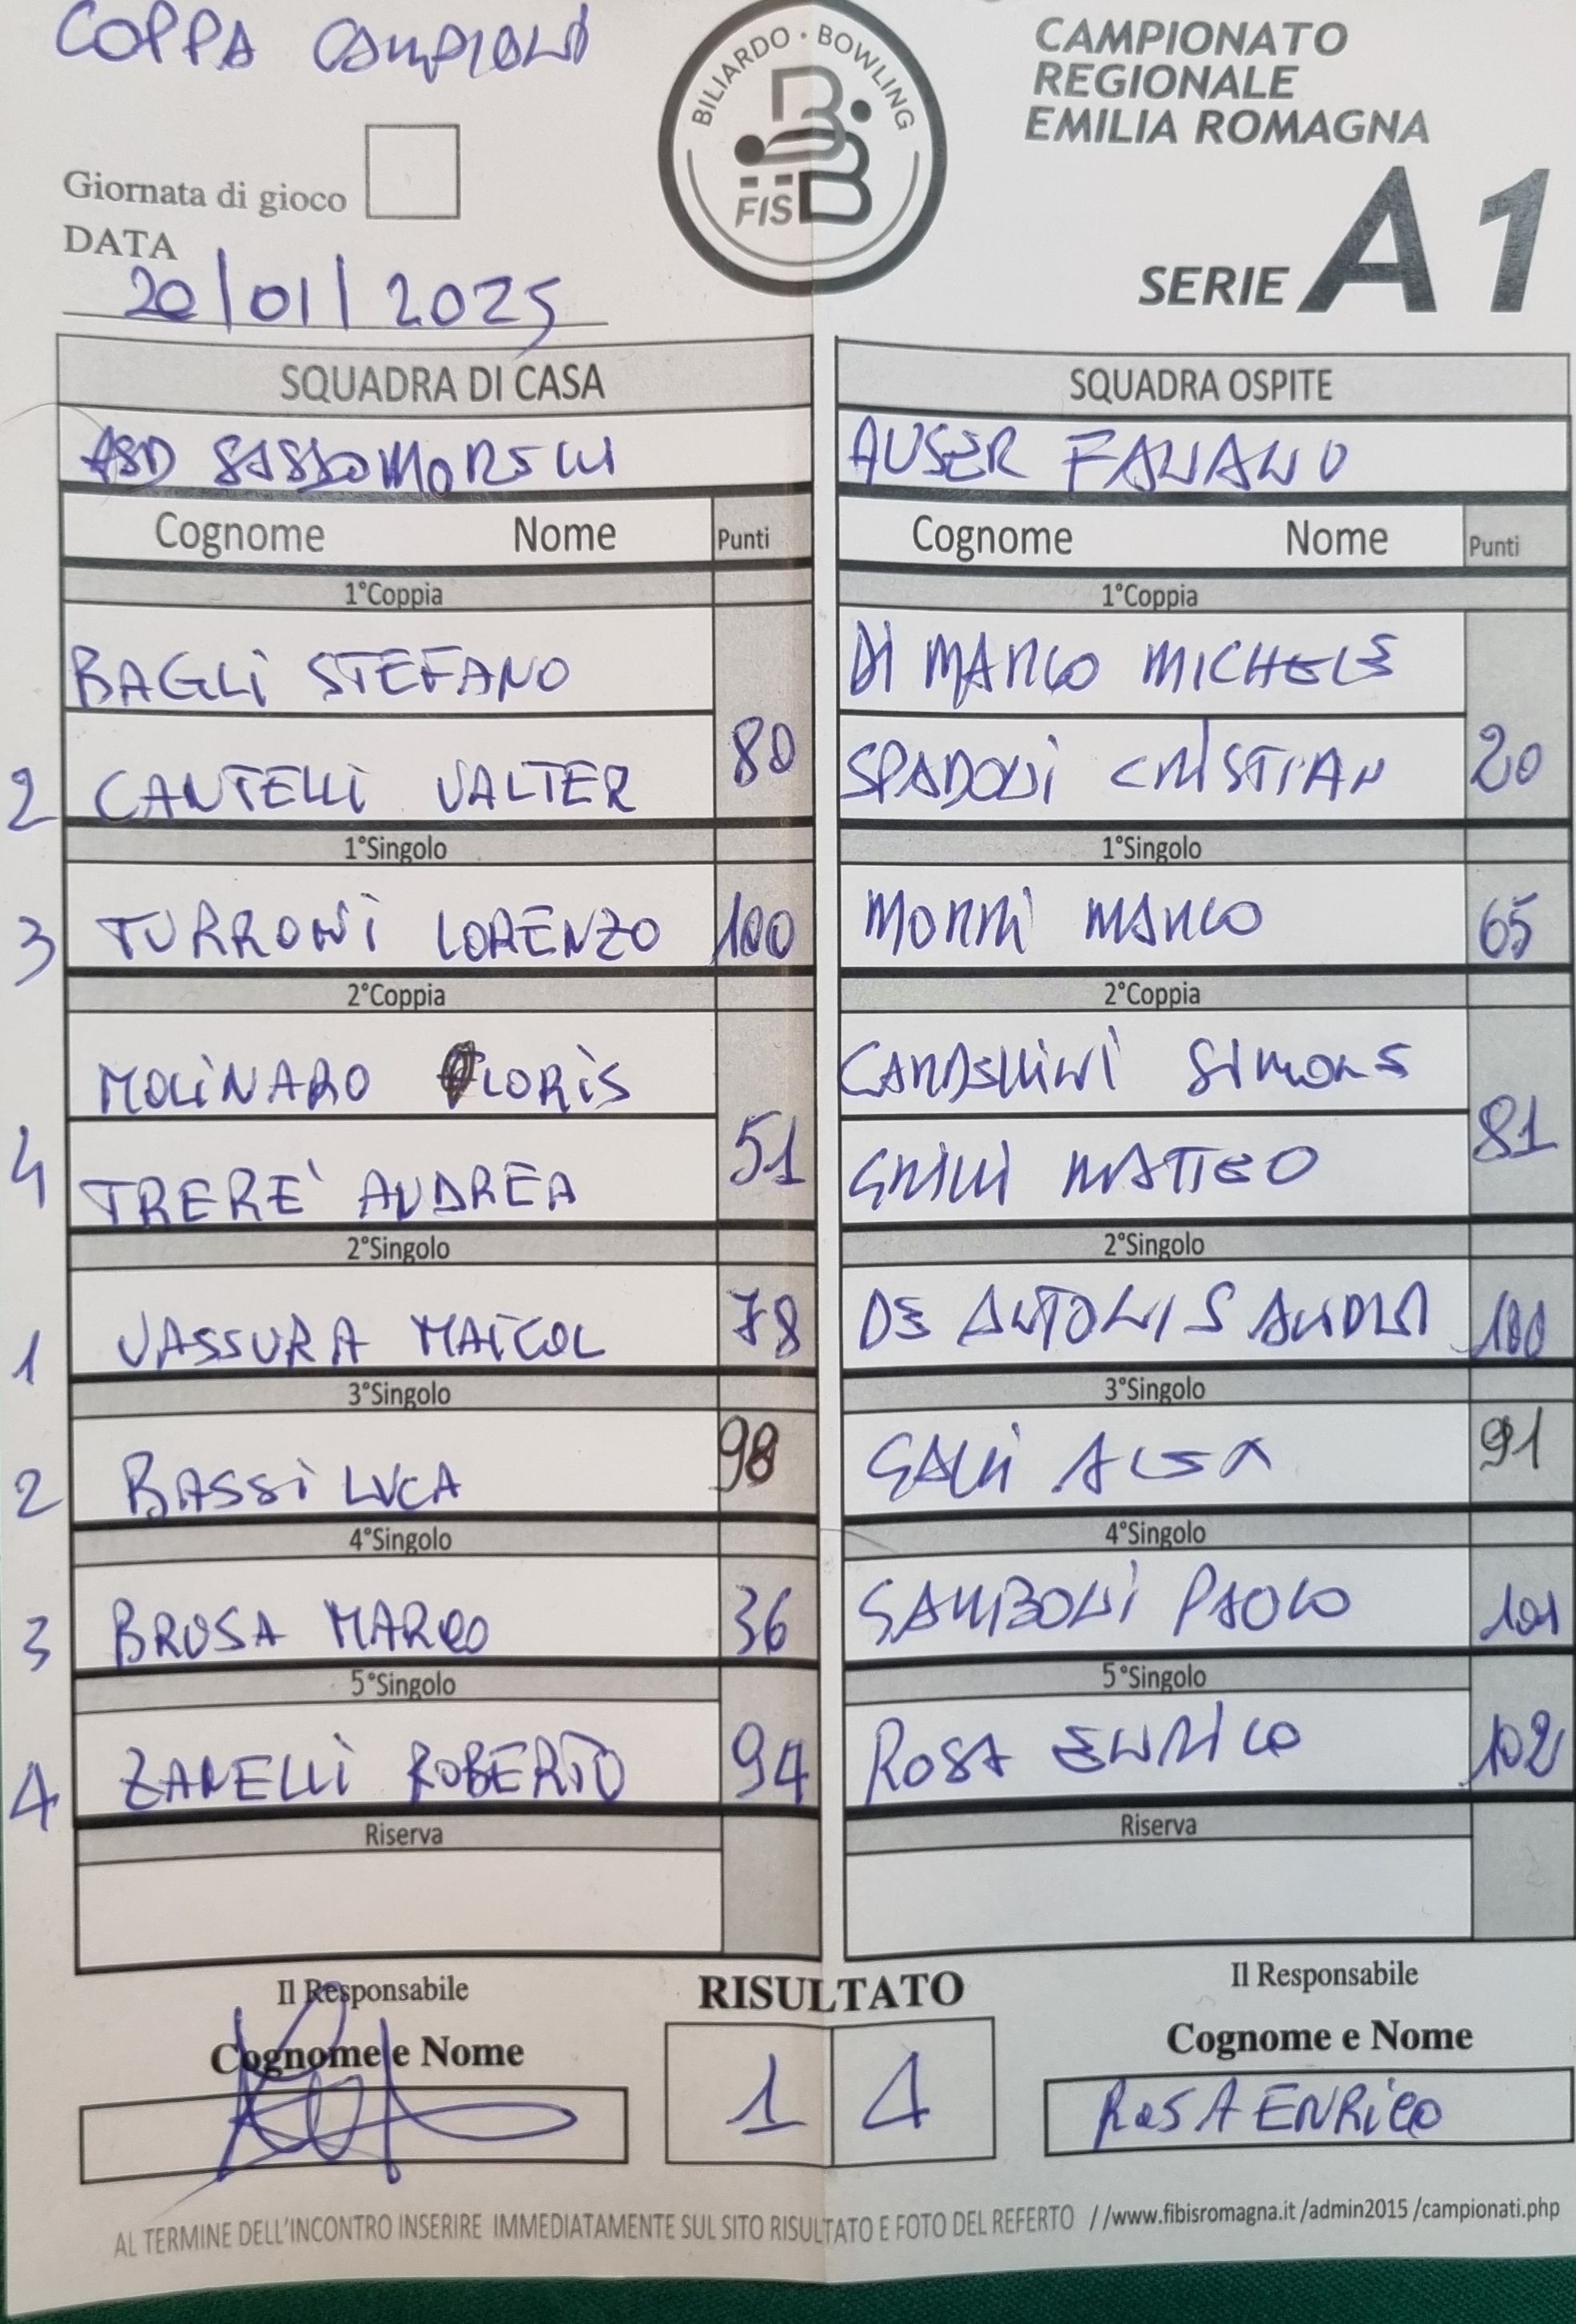 COPPA CAMPIONI
BILIARDO · BOWLING
FISBB
CAMPIONATO
REGIONALE
EMILIA ROMAGNA
SERIE A1
Giornata di gioco
DATA
20/01/2025
SQUADRA DI CASA SQUADRA OSPITE
ASD SASSOMORELLI AUSER FANANO
Cognome Nome Punti Cognome Nome Punti
1°Coppia 1°Coppia
BAGLI STEFANO DI MARCO MICHELE
2 CANTELLI VALTER 80 SPADONI CRISTIAN 20
1°Singolo 1°Singolo
3 TURRONI LORENZO 100 MORRI MARCO 65
2°Coppia 2°Coppia
MOLINARO LORIS SIMONE
4 TRERE' ANDREA 51 GRILLI MATTEO 81
2°Singolo 2°Singolo
1 VASSURA MAICOL 78 DE ANTONIS ANDREA 100
3°Singolo 3°Singolo
2 BASSI LUCA 98 GALLI ALEX 91
4°Singolo 4°Singolo
3 BROSA MARCO 36 ZAMBONI PAOLO 101
5°Singolo 5°Singolo
4 ZANELLI ROBERTO 94 ROSA ENRICO 102
Riserva Riserva
Il Responsabile RISULTATO Il Responsabile
Cognome e Nome Cognome e Nome
1 4 ROSA ENRICO
AL TERMINE DELL'INCONTRO INSERIRE IMMEDIATAMENTE SUL SITO RISULTATO E FOTO DEL REFERTO //www.fibisromagna.it /admin2015 /campionati.php